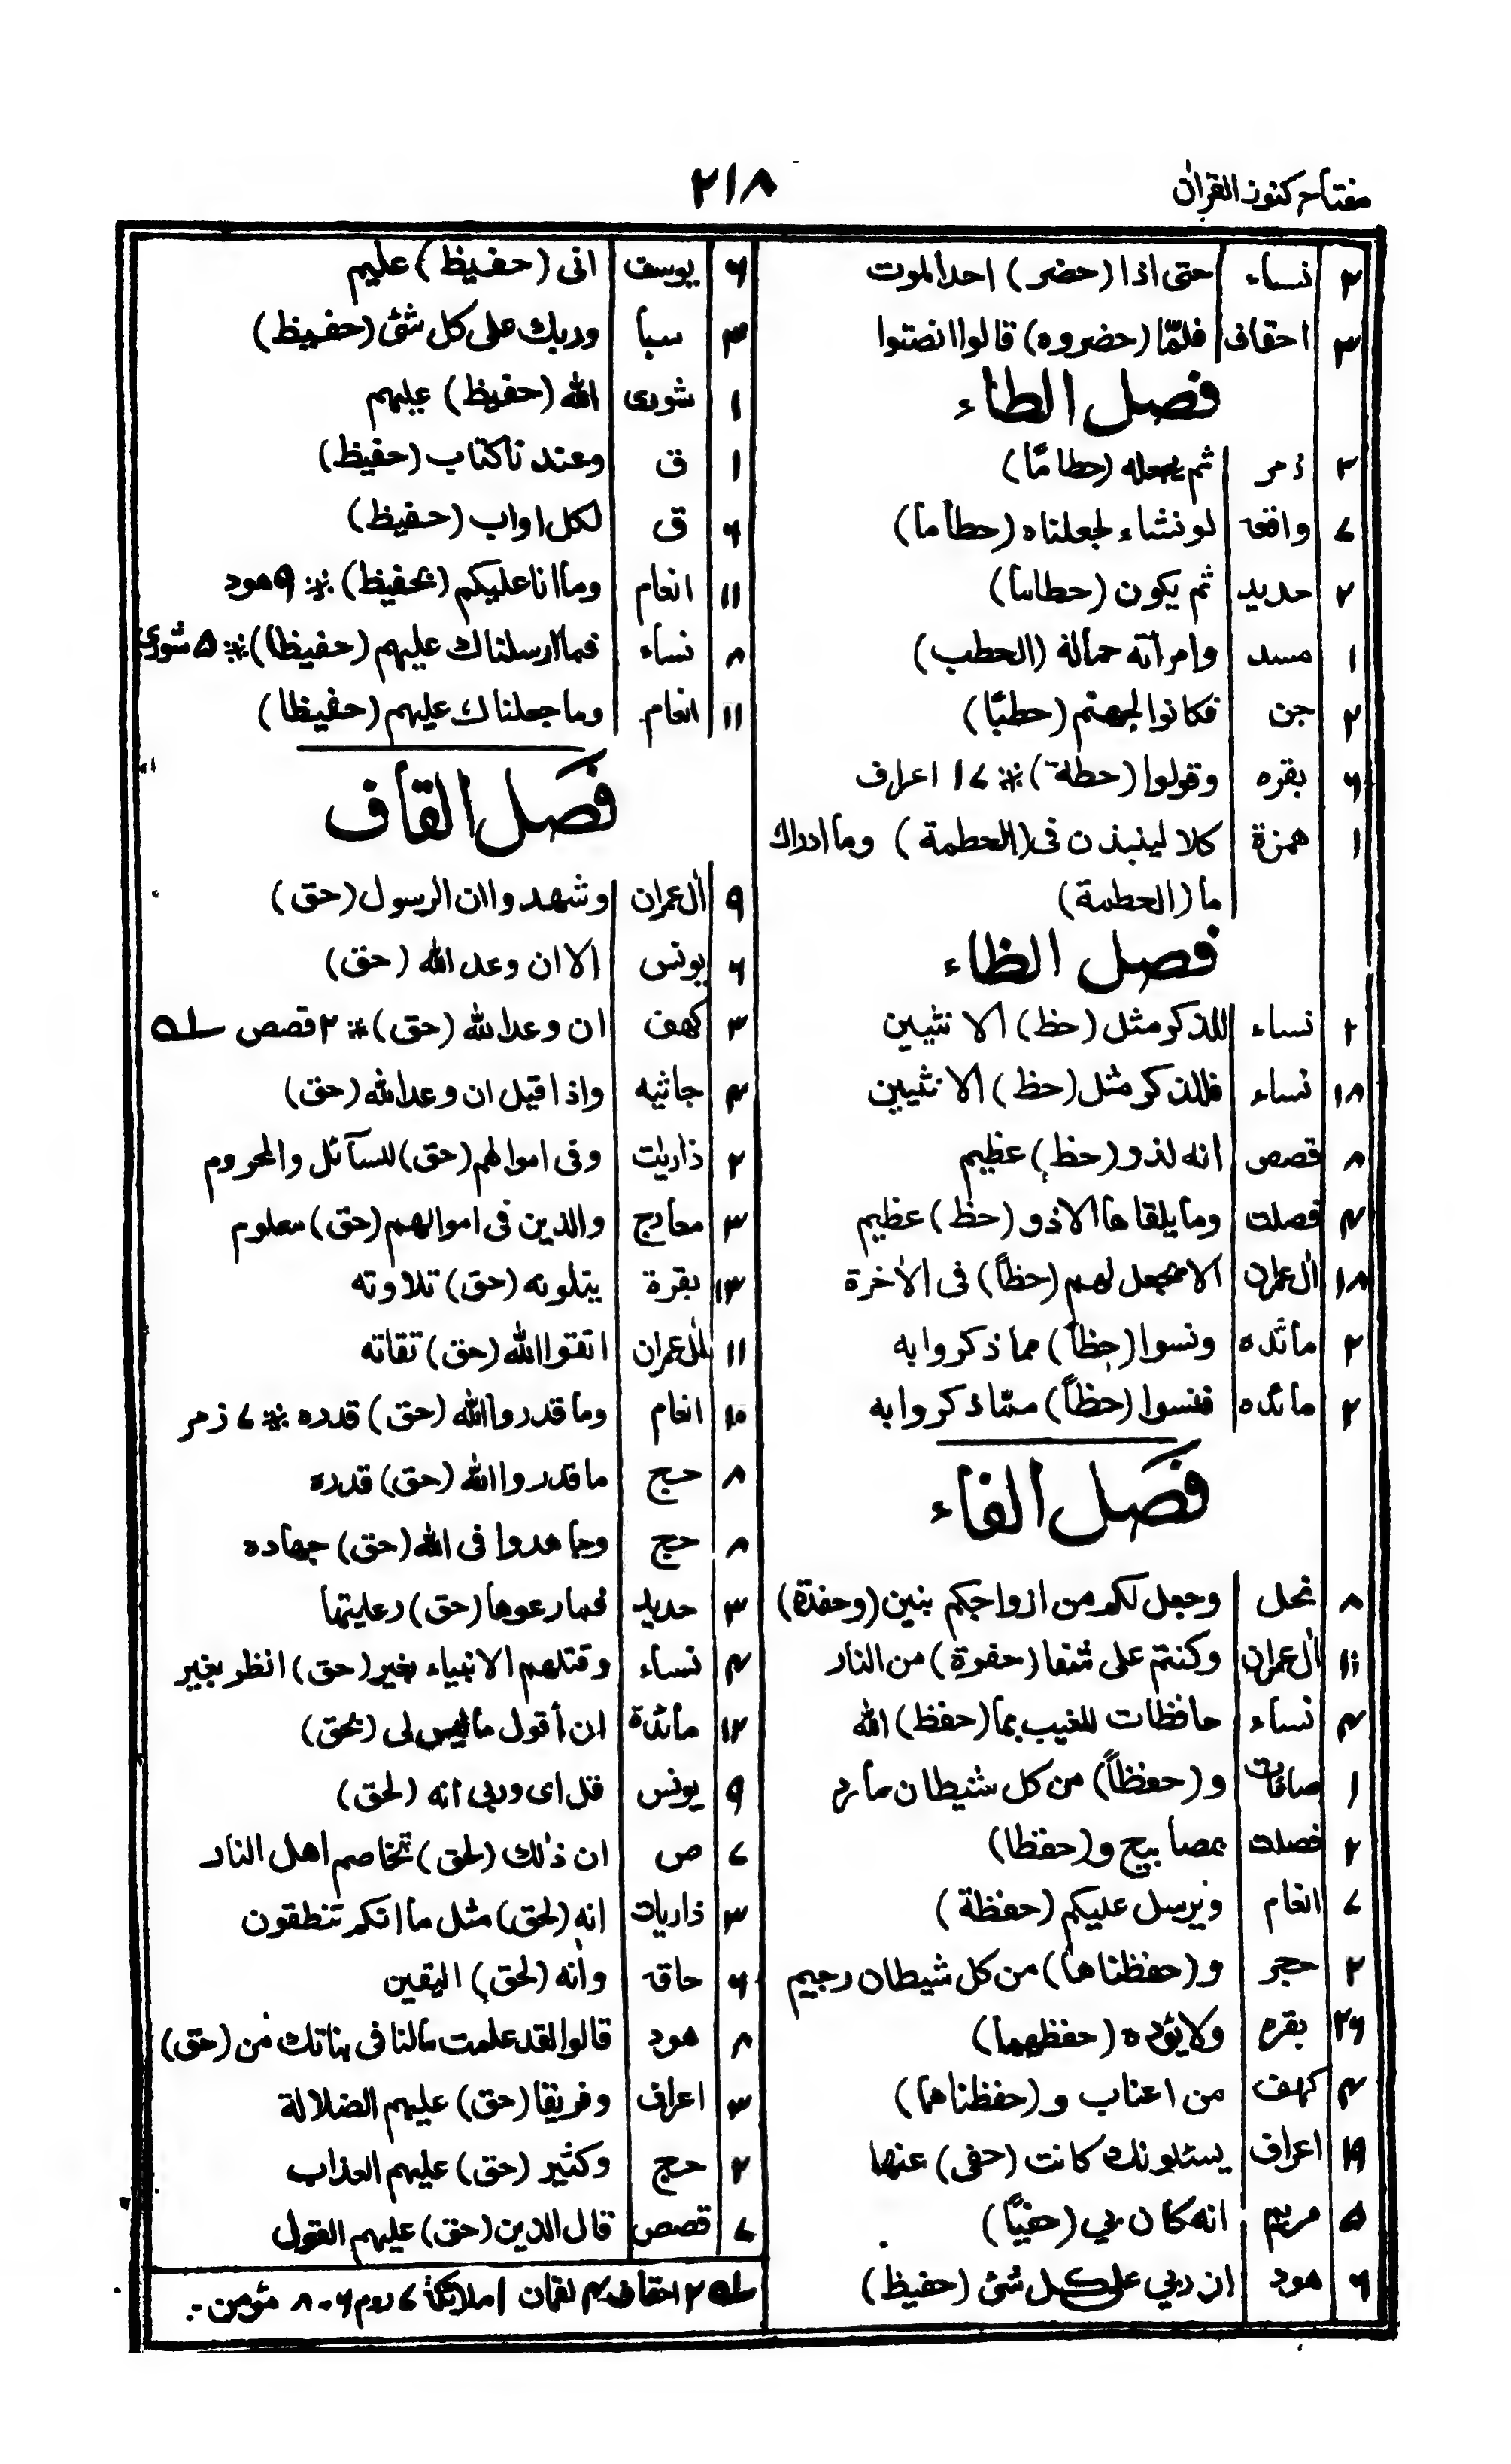 مفتاح كنوز القرآن
٢١٨
٣ نساء حتى اذا (حضر) احدالموت
٣ احقاف فلمّا (حضروه) قالوا انصتوا
فصل الطاء
٢ زمر ثم يجعله (حطامًا)
٧ واقعه لو نشاء لجعلناه (حطاما)
٢ حديد ثم يكون (حطاما)
١ مسد وامرأته حمالة (الحطب)
٢ جن فكانوا لجهنم (حطبًا)
۶ بقره وقولوا (حطة) ※ ١٧ اعراف
١ همزة كلا لينبذن فى (الحطمة) وما ادراك
ما (الحطمة)
فصل الظاء
٢ نساء للذكر مثل (حظ) الانثيين
١٨ نساء فللذكر مثل (حظ) الانثيين
٨ قصص انه لذو (حظ) عظيم
۴ فصلت وما يلقاها الاذو (حظ) عظيم
١٨ اٰل عمران الا يجعل لهم (حظاً) فى الاٰخرة
٢ مائده ونسوا (حظاً) مما ذكروا به
٢ مائده فنسوا (حظاً) ممّا ذكروا به
فصل الفاء
٨ نحل وجعل لكم من ازواجكم بنين (وحفدة)
١١ اٰل عمران وكنتم على شفا (حفرة) من النار
۴ نساء حافظات للغيب بما (حفظ) الله
١ صافات و (حفظاً) من كل شيطان مارد
٢ فصلت بمصابيح و (حفظا)
٧ انعام ويرسل عليكم (حفظة)
٢ حجر و (حفظناها) من كل شيطان رجيم
٣۴ بقره ولا يؤده (حفظهما)
۴ كهف من اعناب و (حفظناهما)
١٩ اعراف يسئلونك كانت (حفى) عنها
۵ مريم انه كان بي (حفيًّا)
۶ هود ان ربي على كل شئ (حفيظ)
۶ يوسف انى (حفيظ) عليم
٣ سبأ وربك على كل شئ (حفيظ)
١ شورى الله (حفيظ) عليهم
١ ق وعندنا كتاب (حفيظ)
۶ ق لكل اواب (حفيظ)
١١ انعام وما انا عليكم (بحفيظ) ※ ٩ هود
٨ نساء فما ارسلناك عليهم (حفيظا) ※ ۵ شورى
١١ انعام وما جعلناك عليهم (حفيظا)
فصل القاف
٩ اٰل عمران وشهدوا ان الرسول (حق)
۶ يونس الا ان وعد الله (حق)
٣ كهف ان وعد الله (حق) ※ ٢ قصص
۴ جاثيه واذا قيل ان وعد الله (حق)
٢ ذاريٰت وفى اموالهم (حق) للسآئل والمحروم
٣ معارج والذين فى اموالهم (حق) معلوم
١٣ بقرة يتلونه (حق) تلاوته
١١ اٰل عمران اتقوا الله (حق) تقاته
١٠ انعام وما قدروا الله (حق) قدره ※ ٧ زمر
٨ حج ما قدروا الله (حق) قدره
٨ حج وجاهدوا فى الله (حق) جهاده
٣ حديد فما رعوها (حق) رعايتها
۴ نساء وقتلهم الانبياء بغير (حق) انظر بغير
١٢ مائدة ان أقول ما ليس لى (بحق)
٩ يونس قل اى وربى انه (لحق)
٧ ص ان ذٰلك (لحق) تخاصم اهل النار
٣ ذاريات انه (لحق) مثل ما انكم تنطقون
۶ حاقه وانه (لحق) اليقين
٨ هود قالوا لقد علمت مالنا فى بناتك من (حق)
٣ اعراف وفريقا (حق) عليهم الضلالة
٢ حج وكثير (حق) عليهم العذاب
٧ قصص قال الذين (حق) عليهم القول
٢ احقاف ۴ لقمان ١ ملائكة ٧ روم ۶ - ٨ مؤمن